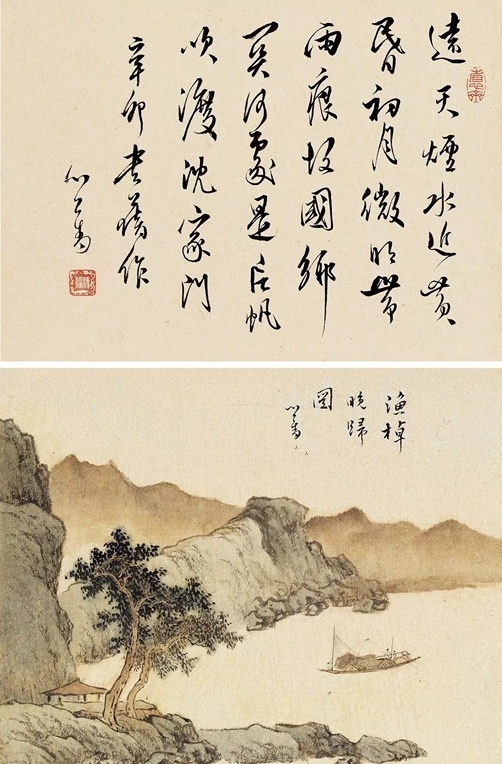 遠天煙水近黃
昏初月微明帶
雨痕故國鄉
關何處是帆
吹渡沈家門
辛卯書舊作
心畬
漁棹
晚歸
圖
心畬